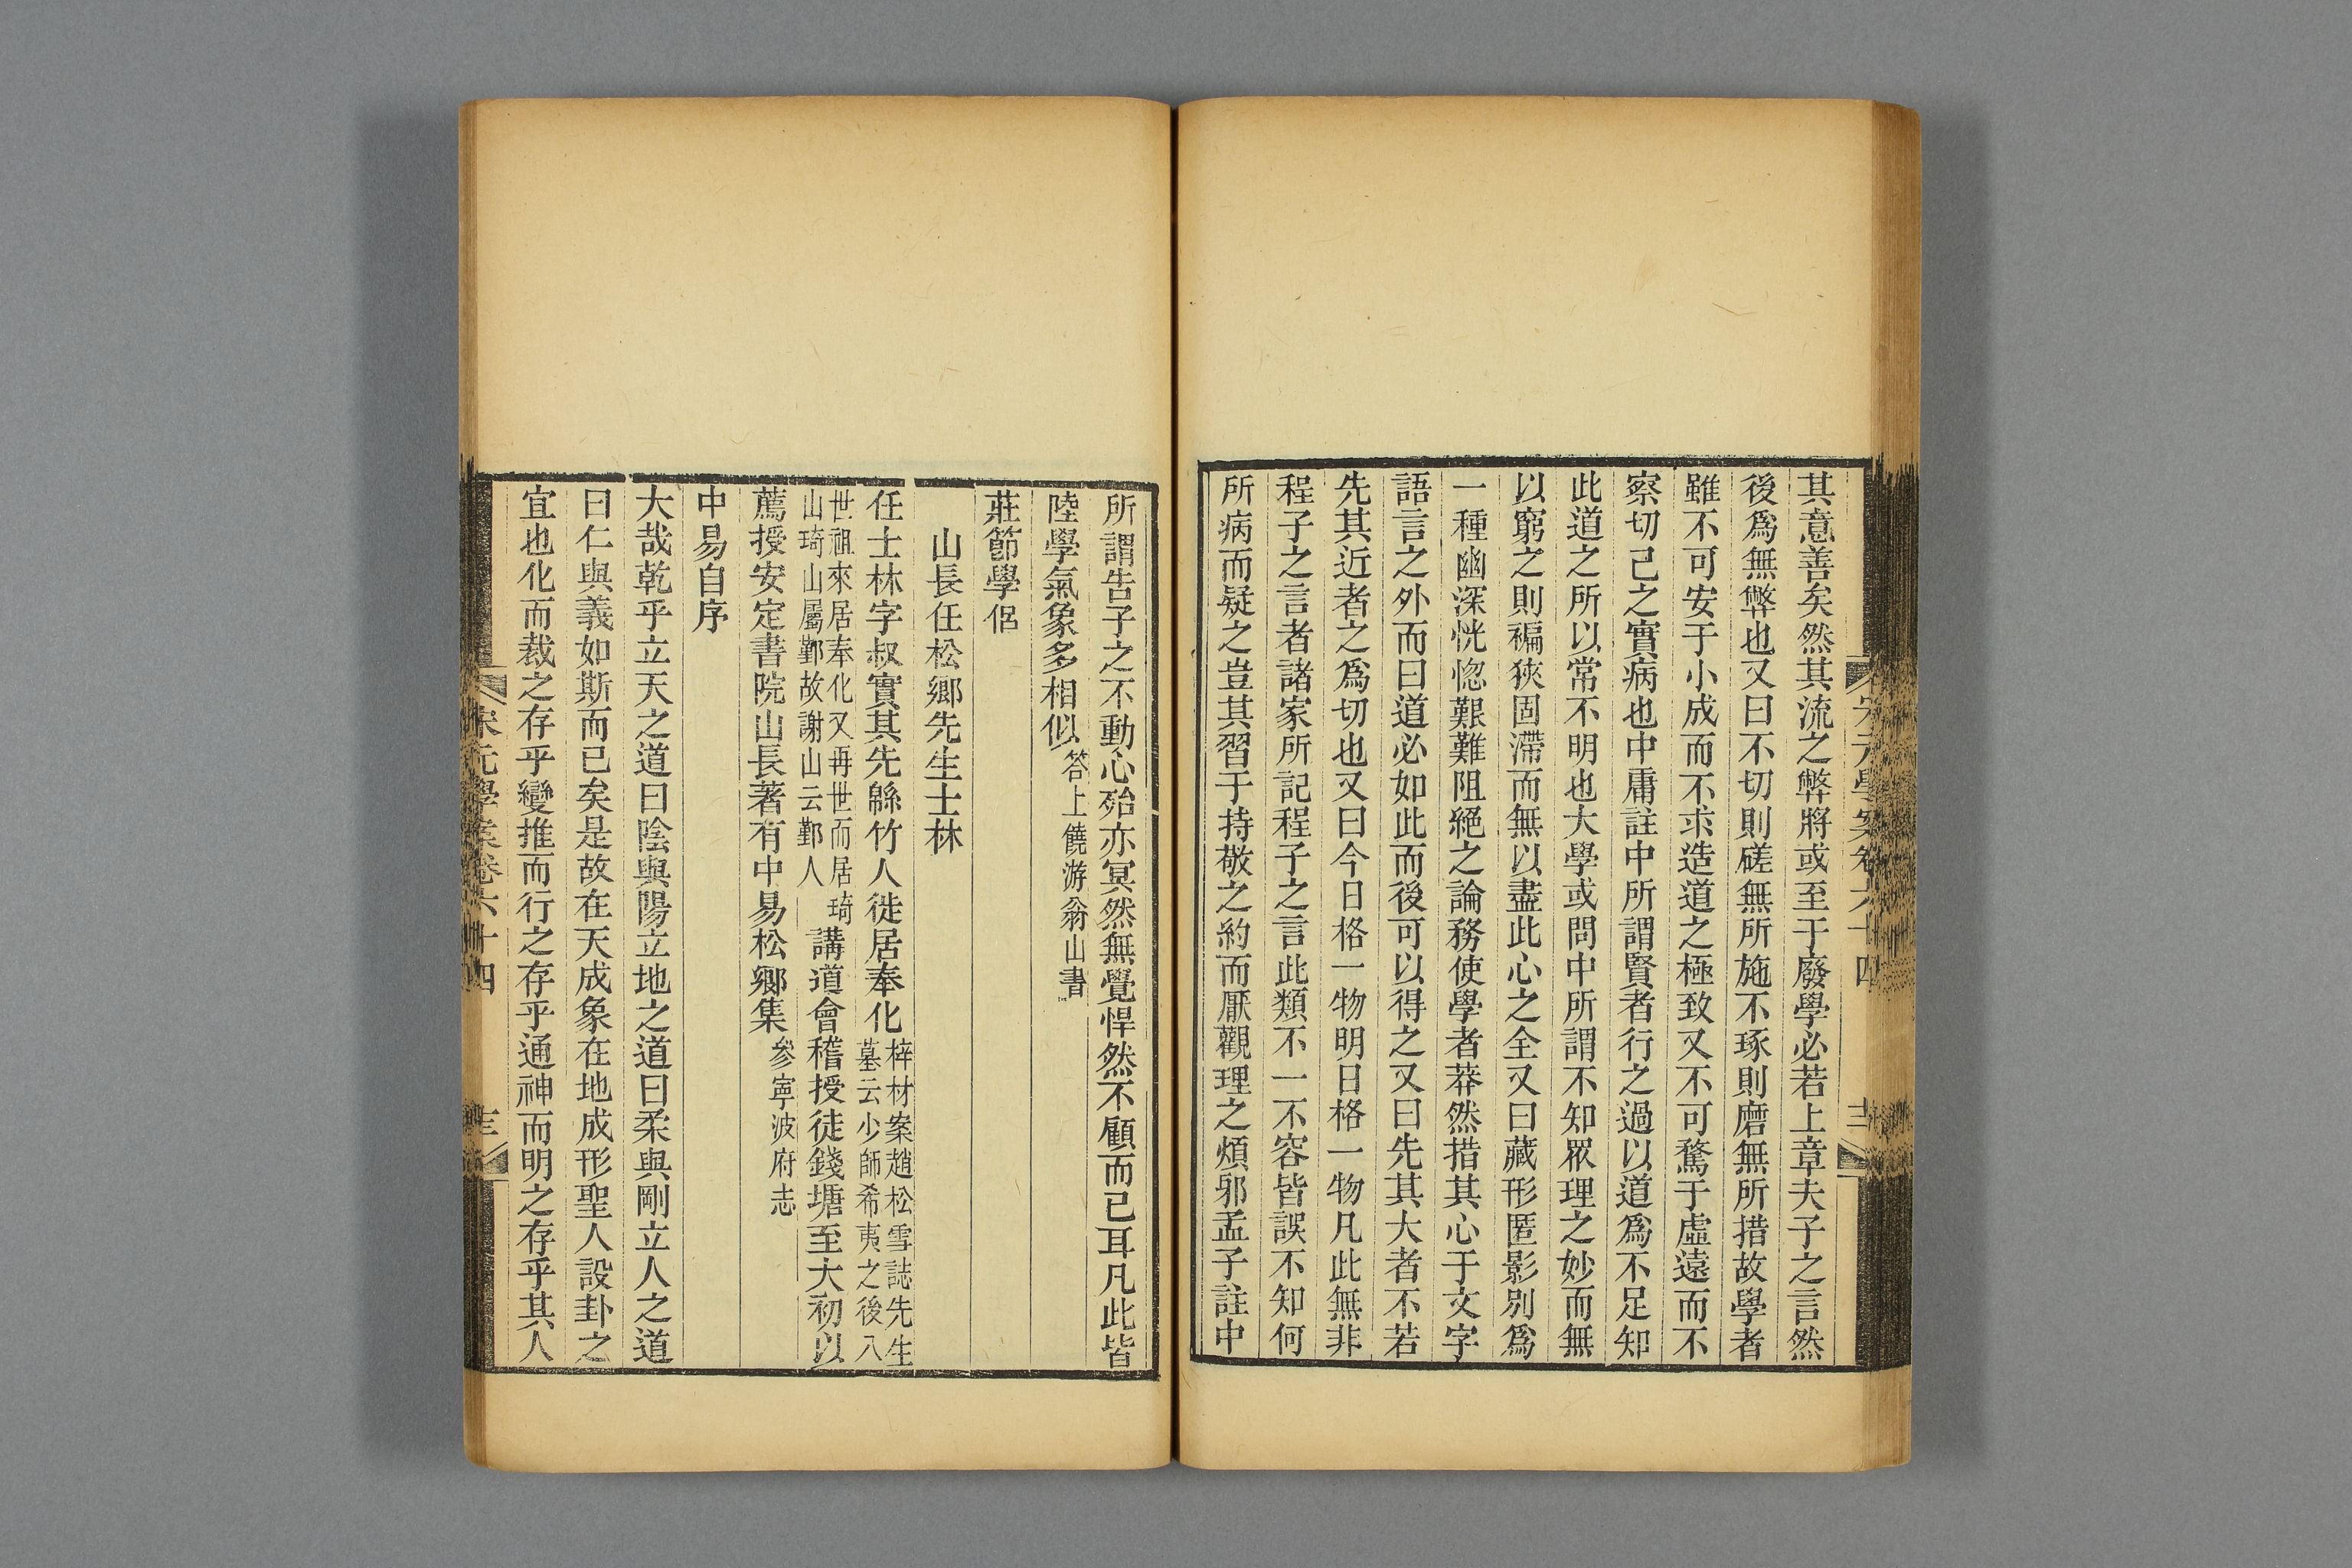 其意善矣然其流之弊將或至于廢學必若上章夫子之言然
後爲無弊也又曰不切則磋無所施不琢則磨無所措故學者
雖不可安于小成而不求造道之極致又不可騖于虛遠而不
察切己之實病也中庸註中所謂賢者行之過以道爲不足知
此道之所以常不明也大學或問中所謂不知眾理之妙而無
以窮之則褊狹固滯而無以盡此心之全又曰藏形匿影別爲
一種幽深恍惚艱難阻絕之論務使學者莽然措其心于文字
語言之外而曰道必如此而後可以得之又曰先其大者不若
先其近者之爲切也又曰今日格一物明日格一物凡此無非
程子之言者諸家所記程子之言此類不一不容皆誤不知何
所病而疑之豈其習于持敬之約而厭觀理之煩邪孟子註中
所謂告子之不動心殆亦冥然無覺悍然不顧而已耳凡此皆
陸學氣象多相似答上饒游翁山書
莊節學侶
山長任松鄉先生士林
任士林字叔實其先緜竹人徙居奉化梓材案趙松雪誌先生
墓云少師希夷之後八
世祖來居奉化又再世而居琦
山琦山屬鄞故謝山云鄞人講道會稽授徒錢塘至大初以
薦授安定書院山長著有中易松鄉集參寧波府志
中易自序
大哉乾乎立天之道曰陰與陽立地之道曰柔與剛立人之道
曰仁與義如斯而已矣是故在天成象在地成形聖人設卦之
宜也化而裁之存乎變推而行之存乎通神而明之存乎其人
宋元學案卷六十四